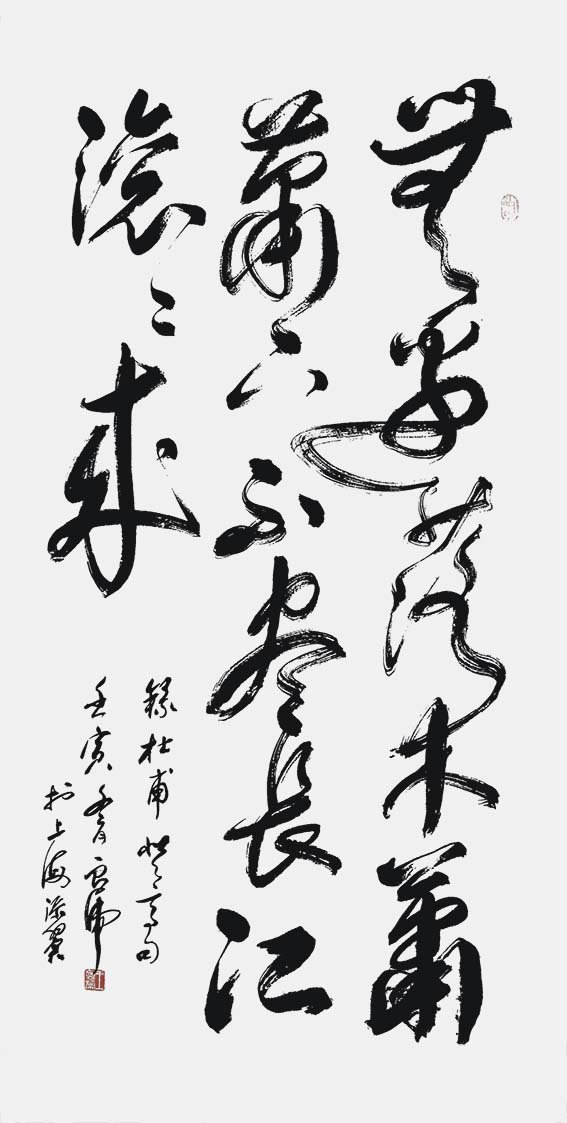 無邊落木蕭
蕭下不盡長江
滾〻來
錄杜甫登高句
壬寅
於上海